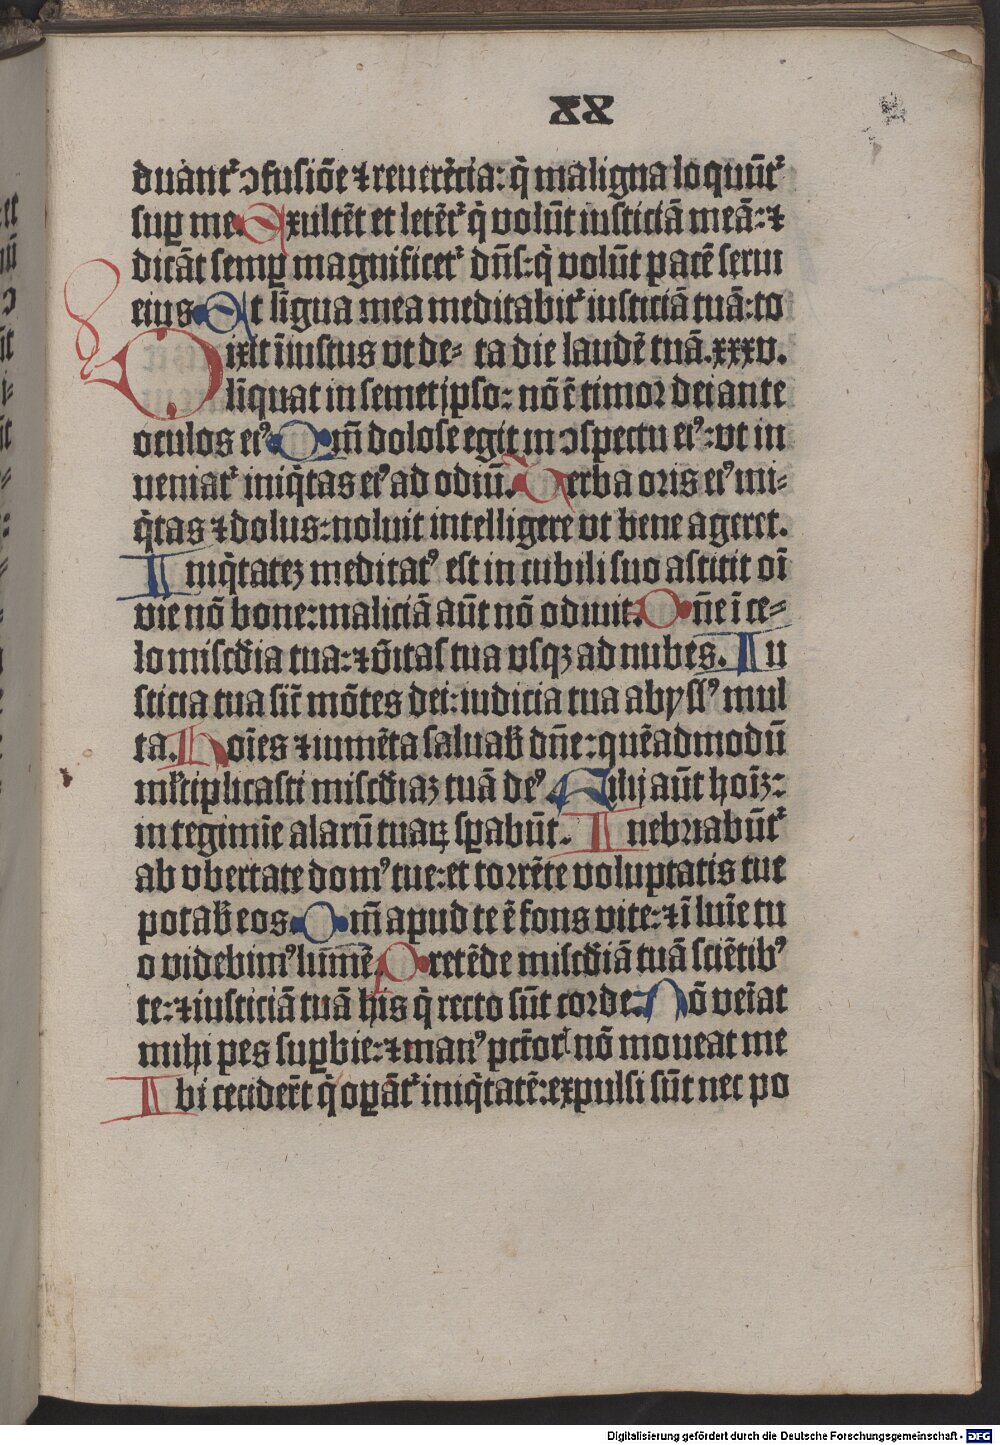 XX
duant᷑ ↄfusiōe ⁊ reuerēcia: q̇ maligna loquūt᷑
suꝑ me. Exultēt et letēt᷑ q̇ volūt iusticiā meā: ⁊
dicāt semꝑ magnificet᷑ dn̄s: q̇ volūt pacē serui
eius. Et līgua mea meditabit᷑ iusticiā tuā: to
Dixit īiustus vt de= ta die laudē tuā. xxxv.
līquat in semetipso: nō ē timor dei ante
oculos eiꝰ. Qm̄ dolose egit in ↄspectu eiꝰ: vt in
ueniat᷑ iniq̇tas eiꝰ ad odiū. Verba oris eiꝰ ini=
q̇tas ⁊ dolus: noluit intelligere vt bene ageret.
Iniq̇tatez meditatꝰ est in cubili suo astitit oī
vie nō bone: maliciā aūt nō odiuit. Dn̄e ī ce=
lo misc̄dia tua: ⁊ v̄itas tua vsqꝫ ad nubes. Iu
sticia tua sic̄ mōtes dei: iudicia tua abyssꝰ mul
ta. Hoīes ⁊ iumēta saluab̄ dn̄e: quēadmodū
ml̄tiplicasti misc̄diaꝫ tuā deꝰ. Filij aūt hoīꝫ:
in tegimīe alarū tuaꝝ sꝑabūt. Inebriabūt᷑
ab vbertate domꝰ tue: et torrēte voluptatis tue
potab̄ eos. Qm̄ apud te ē fons vite: ⁊ ī luīe tu
o videbimꝰ lumē. Pretēde misc̄diā tuā sciētibꝰ
te: ⁊ iusticiā tuā his q̇ recto sūt corde. Nō veīat
mihi pes suꝑbie: ⁊ manꝰ pctor̄ nō moueat me
Ibi cecider̄t q̇ oꝑāt᷑ iniq̇tatē: expulsi sūt nec po
Digitalisierung gefördert durch die Deutsche Forschungsgemeinschaft - DFG